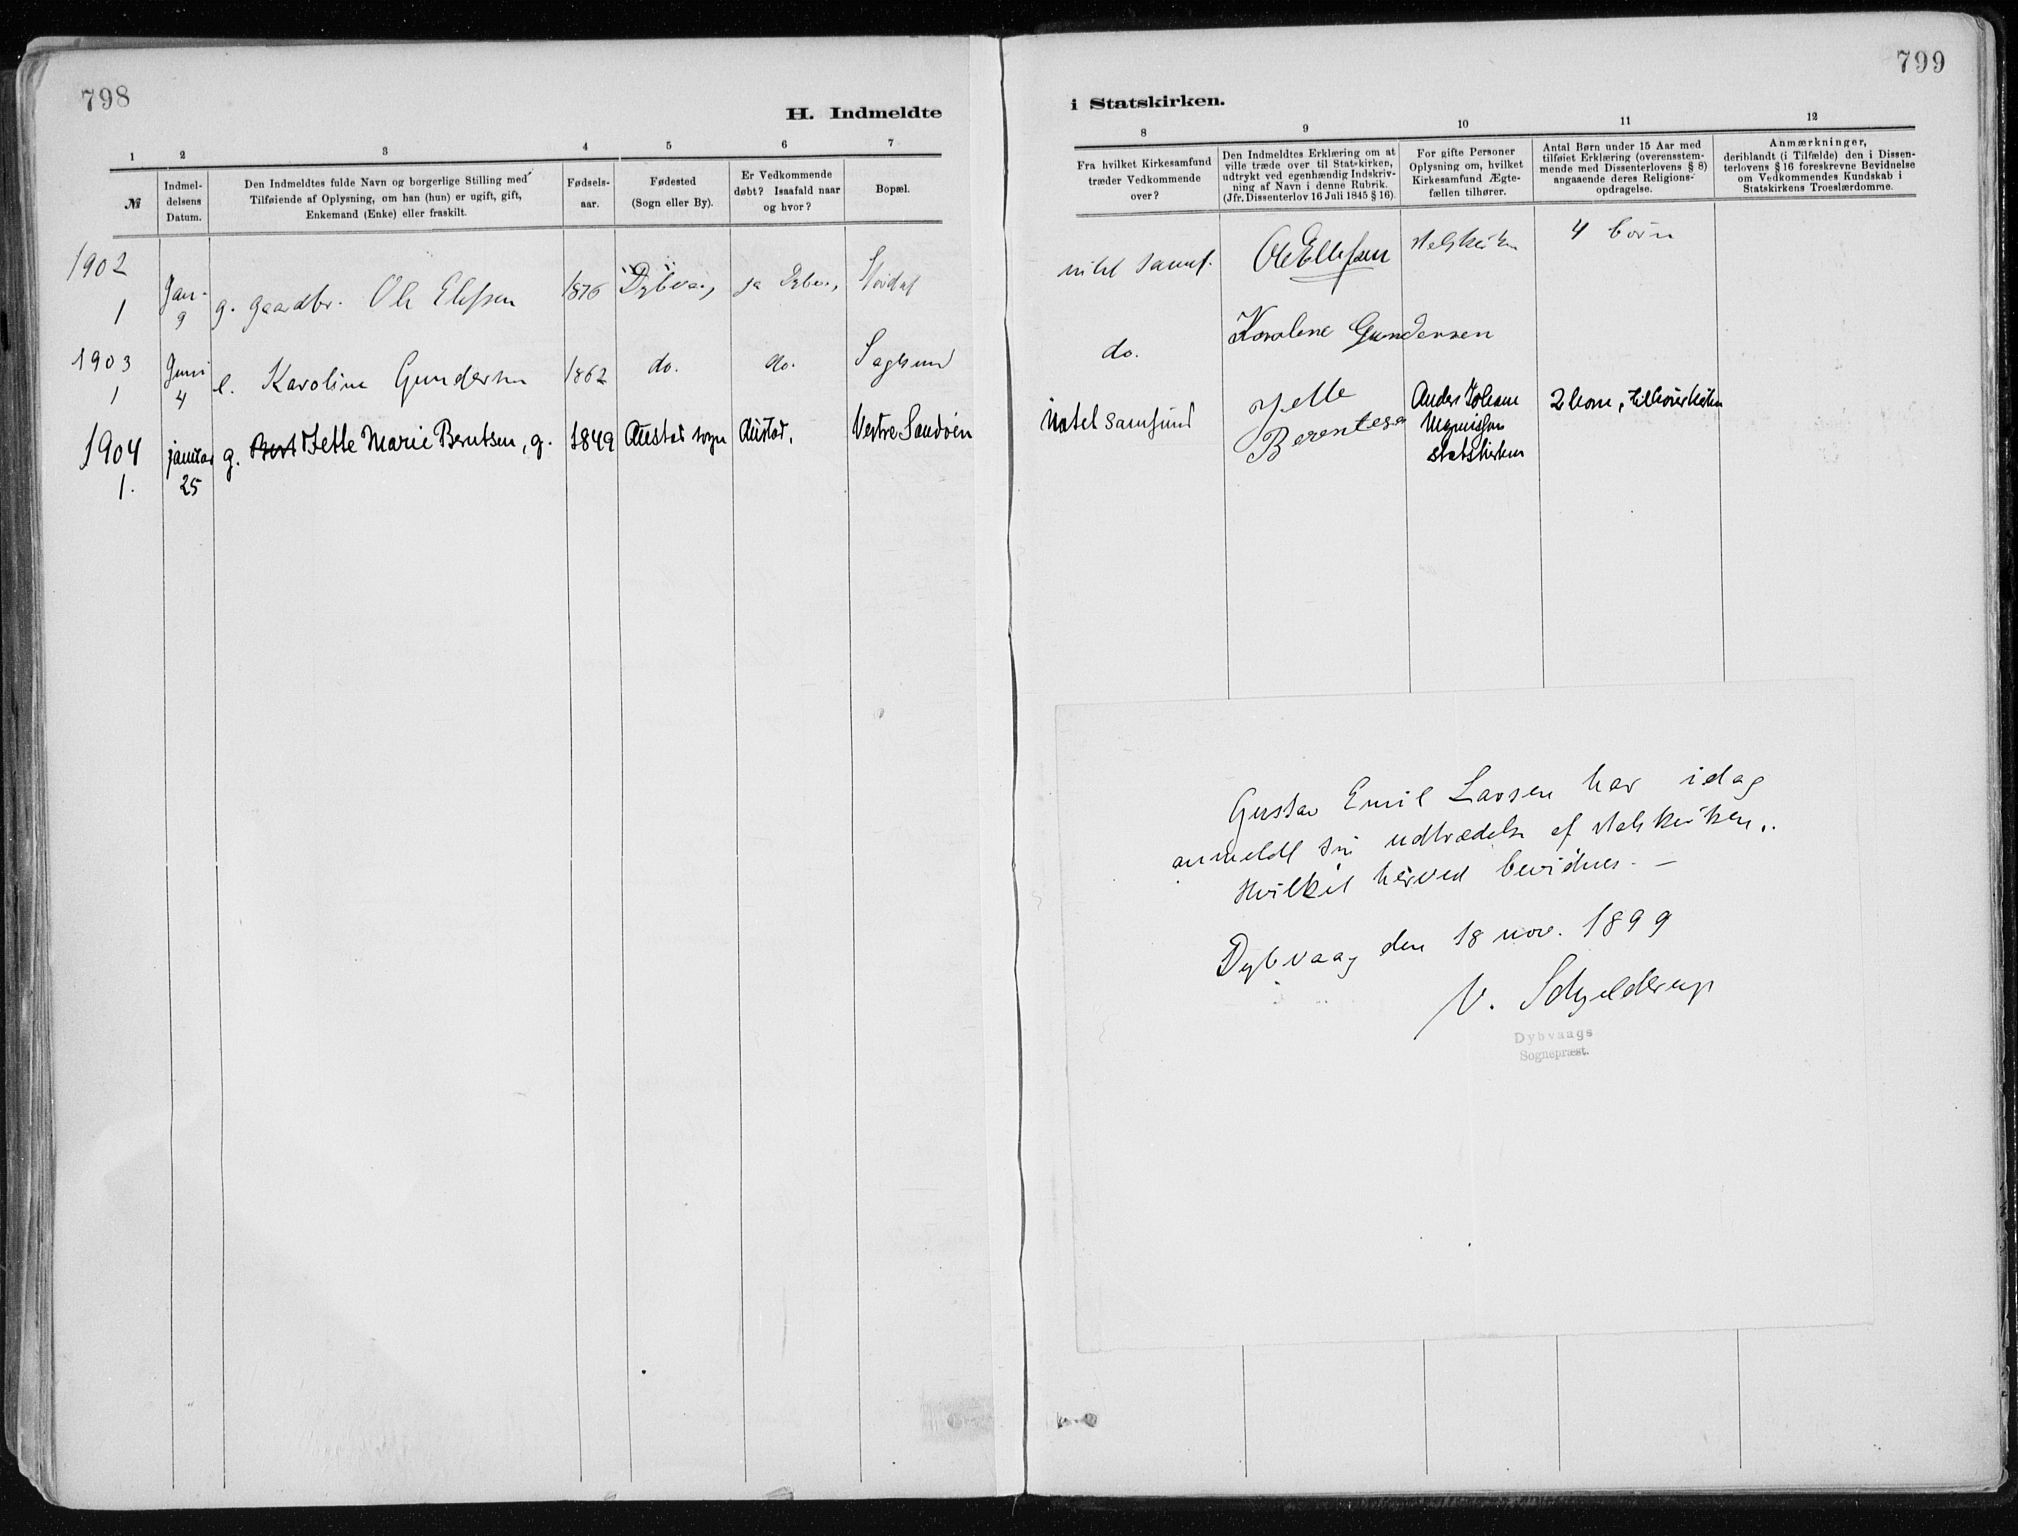 798
H. Indmeldte
1 2 3 4 5 6 7
№
Indmel-
delsens
Datum.
Den Indmeldtes fulde Navn og borgerlige Stilling med
Tilføiende af Oplysning, om han (hun) er ugift, gift,
Enkemand (Enke) eller fraskilt.
Fødsels-
aar.
Fødested
(Sogn eller By).
Er Vedkommende
døbt? Isaafald naar
og hvor?
Bopæl.
1902
1
Jan.
9
g. gaardbr. Ole Ellefsen
1876
Dybvaag
ja Dybv.,
1903
1
Juni
4
e. Karoline Gundersen
1862
do.
do.
Sagesund
1904
1.
januar
25
g. Jette Marie Berntsen, g.
1849
Austad sogn
Austad.
Vestre Sandøen
799
i Statskirken.
8 9 10 11 12
Fra hvilket Kirkesamfund
træder Vedkommende
over?
Den Indmeldtes Erklæring om at
ville træde over til Statskirken,
udtrykt ved egenhændig Indskriv-
ning af Navn i denne Rubrik.
(Jfr. Dissenterlov 16 Juli 1845 § 16).
For gifte Personer
Oplysning om, hvilket
Kirkesamfund Ægte-
fællen tilhører.
Antal Børn under 15 Aar med
tilføiet Erklæring (overensstem-
mende med Dissenterlovens § 8)
angaaende deres Religions-
opdragelse.
Anmærkninger,
deriblandt (i Tilfælde) den i Dissen-
terlovens § 16 foreskrevne Bevidnelse
om Vedkommendes Kundskab i
Statskirkens Troeslærdomme.
intet samf.
Ole Ellefsen
statskirken
4 börn
do.
Karolene Gundersen
Intet samfund
Jette
Berentesen
Anders Johan
statskirken
Gustav Emil Larsen har idag
anmeldt sin udtrædelse af statskirken,.
Hvilket herved bevidnes. —
Dybvaag den 18 nov. 1899
V. Schjelderup
Dybvaags
Sognepræst.